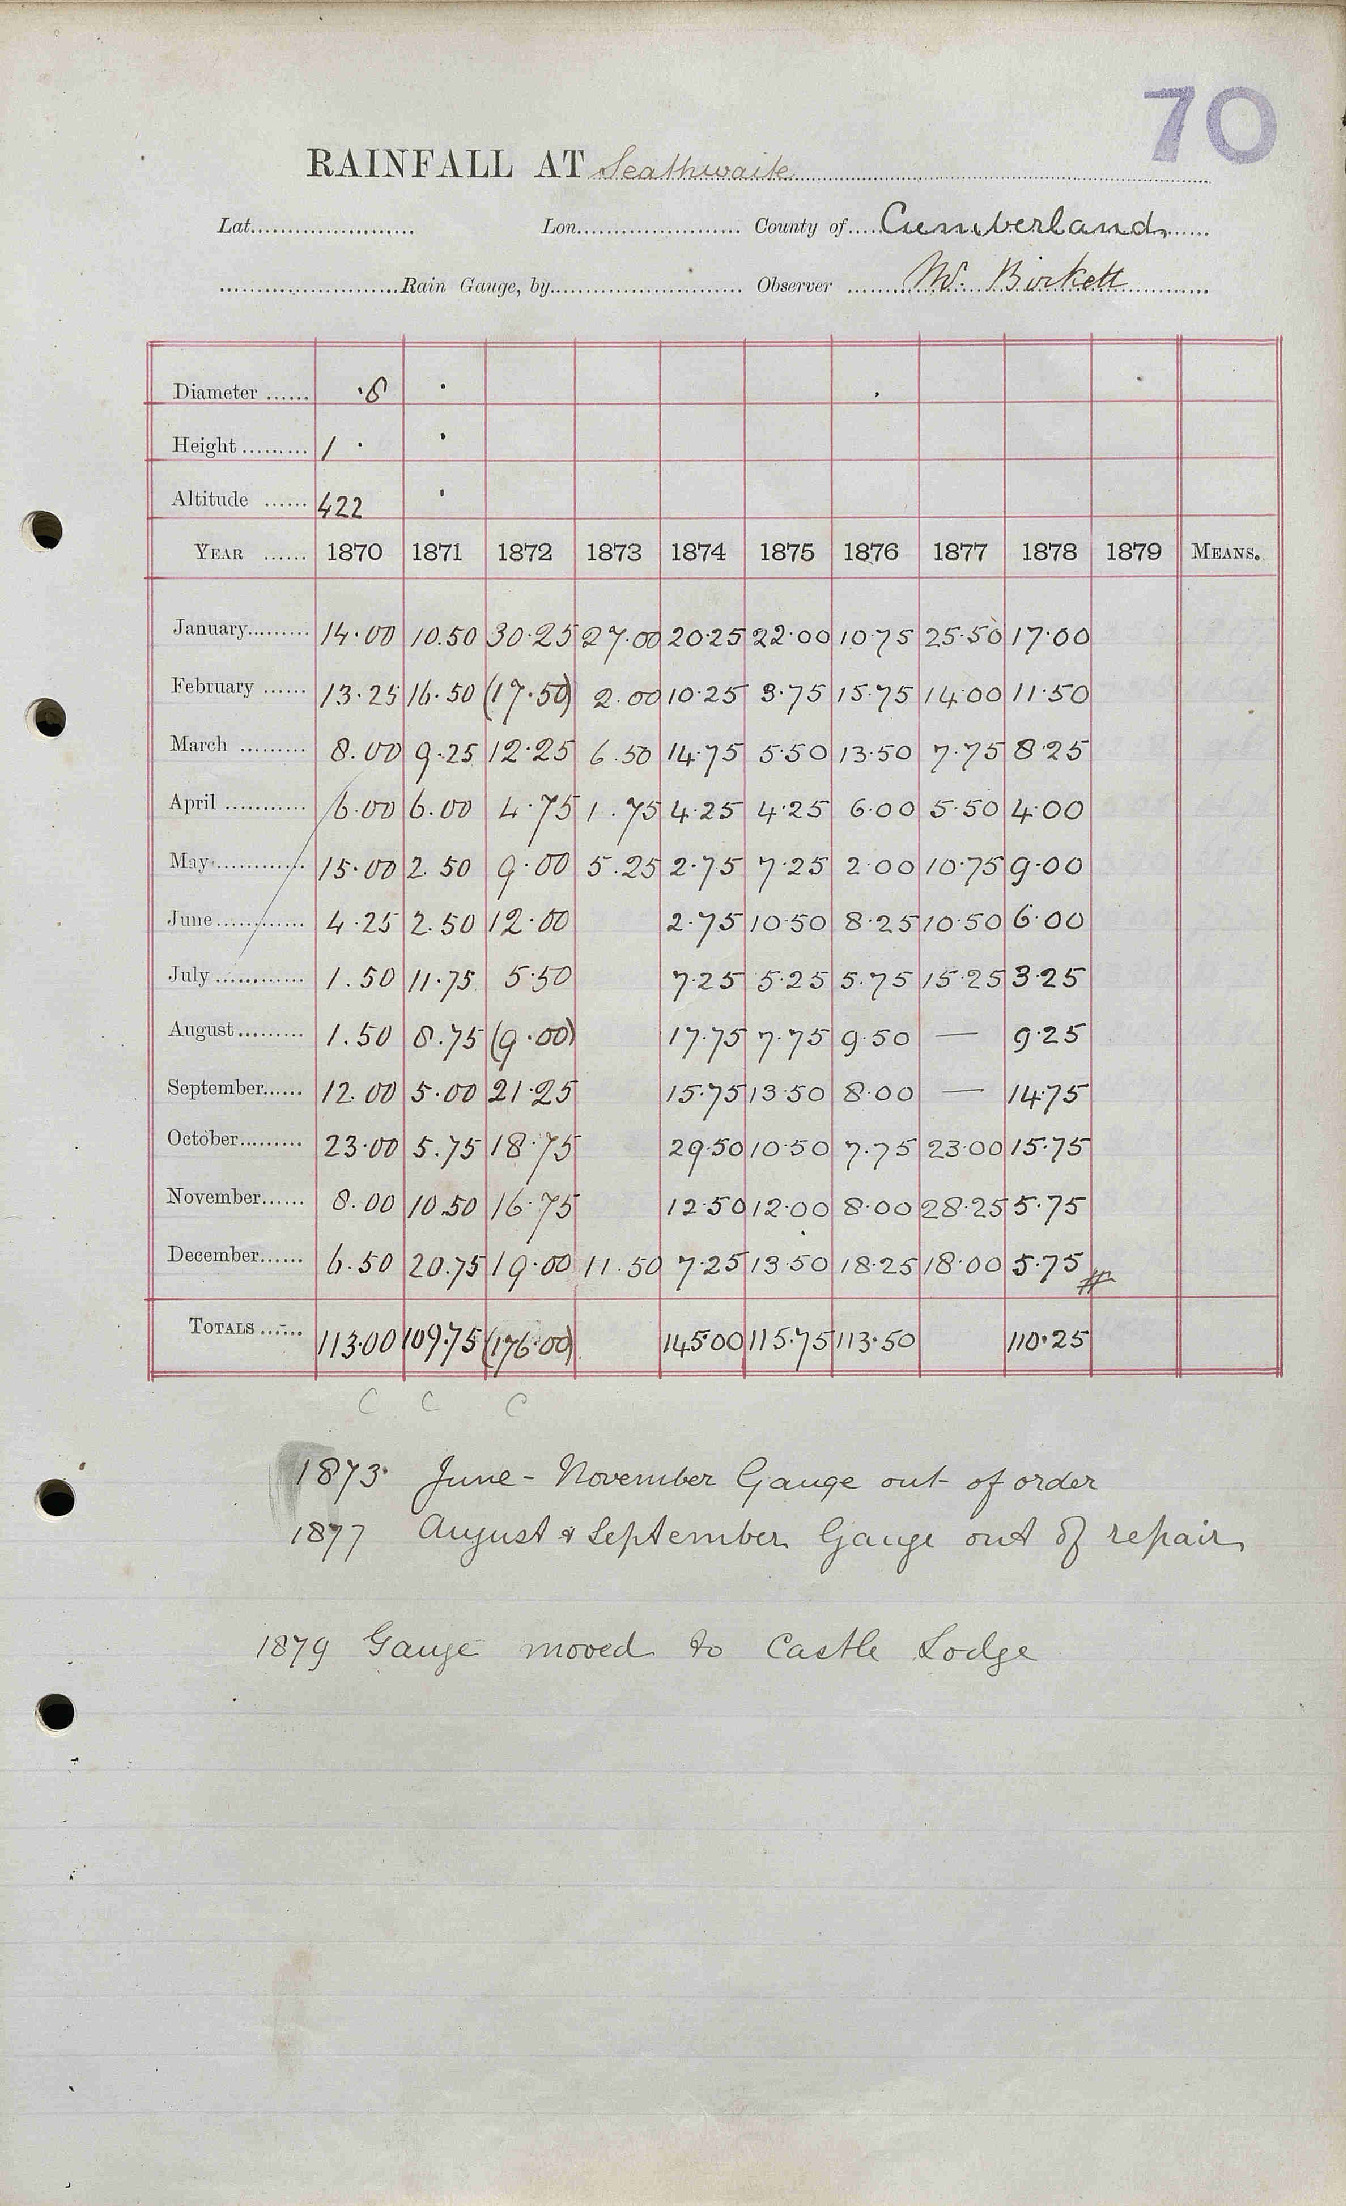 70
RAINFALL AT Seathwaite
Lat. Lon. County of Cumberland
Rain Gauge, by Observer W. Birkett
Diameter ·8 ·
Height 1 · ·
Altitude 422 ·
YEAR 1870 1871 1872 1873 1874 1875 1876 1877 1878 1879 MEANS.
January 14·00 10.50 30·25 27·00 20·25 22·00 10·75 25·50 17·00
February 13·25 16·50 (17·50) 2.00 10·25 3·75 15·75 14·00 11·50
March 8.00 9·25 12·25 6·50 14·75 5·50 13·50 7·75 8·25
April 6·00 6.00 4·75 1.75 4·25 4·25 6·00 5·50 4·00
May 15·00 2.50 9·00 5.25 2·75 7·25 2·00 10·75 9·00
June 4·25 2.50 12·00 2·75 10·50 8·25 10·50 6·00
July 1.50 11·75 5·50 7·25 5·25 5·75 15·25 3·25
August 1.50 8.75 (9·00) 17·75 7·75 9·50 — 9·25
September 12.00 5·00 21·25 15·75 13·50 8·00 — 14·75
October 23·00 5.75 18·75 29·50 10·50 7·75 23·00 15·75
November 8.00 10.50 16·75 12·50 12·00 8·00 28·25 5·75
December 6.50 20.75 19·00 11·50 7·25 13·50 18·25 18·00 5·75
TOTALS 113·00 109·75 (176·00) 145·00 115·75 113·50 110·25
C C C
1873· June - November Gauge out of order
1877 August & September Gauge out of repair
1879 Gauge moved to Castle Lodge